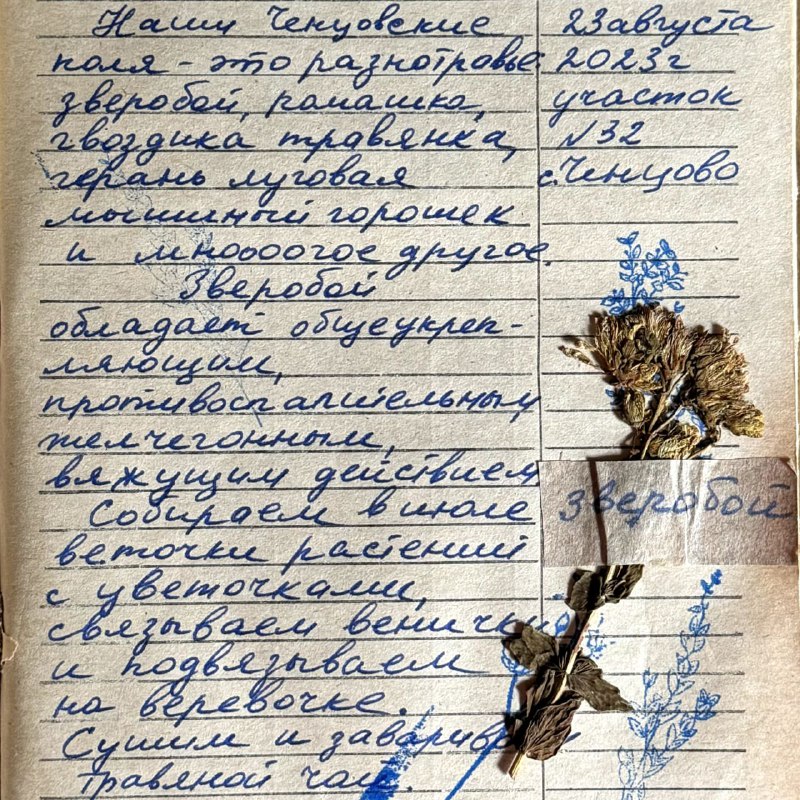 Наши Ченцовские
поля - это разнотравье:
зверобой, ромашка,
гвоздика травянка,
герань луговая
мышиный горошек
и мноооогое другое.
Зверобой
обладает общеукреп-
ляющим,
противоспалительным,
желчегонным,
вяжущим действием
Собираем в июле
веточки растений
с цветочками,
связываем венички
и подвязываем
на веревочке.
Сушим и завариваем
травяной чай.
23 августа
2023г
участок
№32
с. Ченцово
зверобой